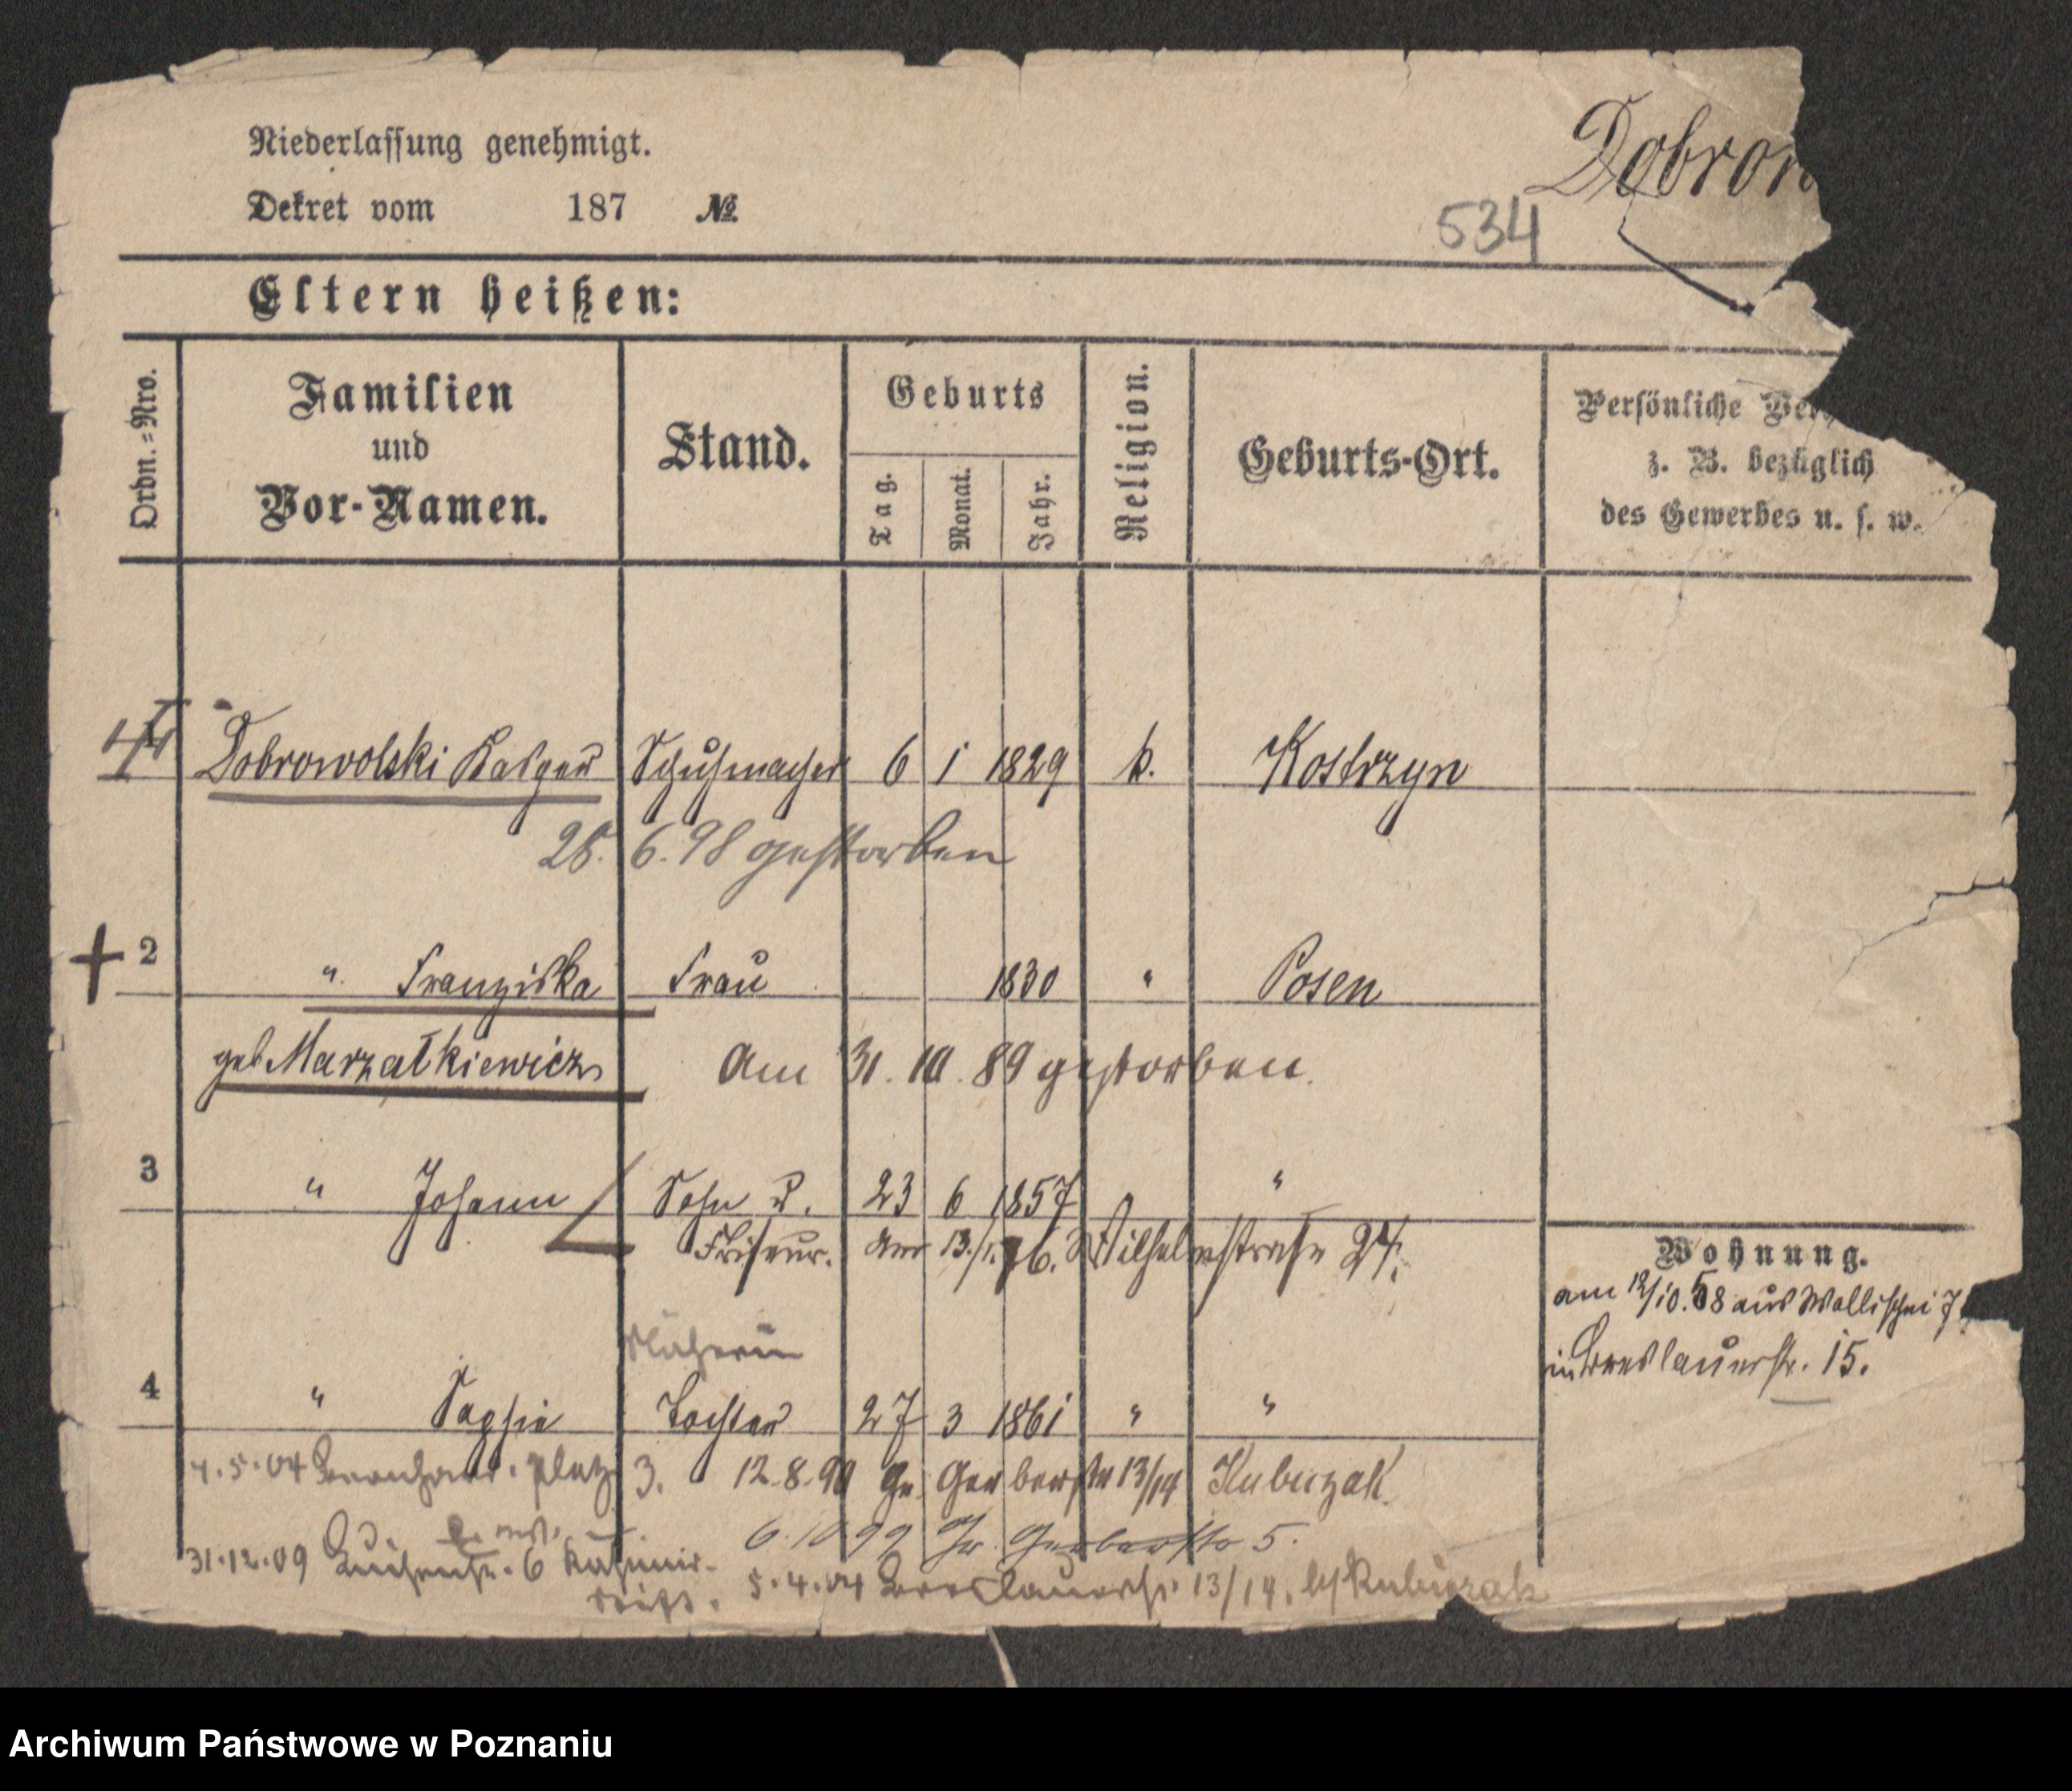 Niederlassung genehmigt.
Dekret vom 187 №
Dobrow
534
Eltern heißen:
Ordn.=Nro.
Familien
und
Vor-Namen.
Stand.
Geburts
Tag.
Monat.
Jahr.
Religion.
Geburts-Ort.
Persönliche Ver
z. B. bezüglich
des Gewerbes u. s. w.
Dobrowolski Kasper Schuhmacher 6 1 1829 k. Kostrzyn
28. 6. 98 gestorben
2 " Franziska Frau 1830 " Posen
geb Marzatkiewicz Am 31. 10. 89 gestorben.
3 " Johann Sohn u. 23 6 1857 "
Friseur. am 13./1. 76. Wilhelmstraße 27.
Wohnung.
am 12/10. 68 aus Wallischei 7
in Breslauerstr. 15.
Näherin
4 " Sophie Tochter 27 3 1861 " "
4. 5. 04 Bernhard. platz 3. 12. 8. 90 Gr. Gerberstr 13/14 Kubuzak
6. 10 99 Gr. Gerberstr 5.
31. 12. 09 6 Kasimir-
5. 4. 04 Breslauerstr. 13/14. by Kubuzak